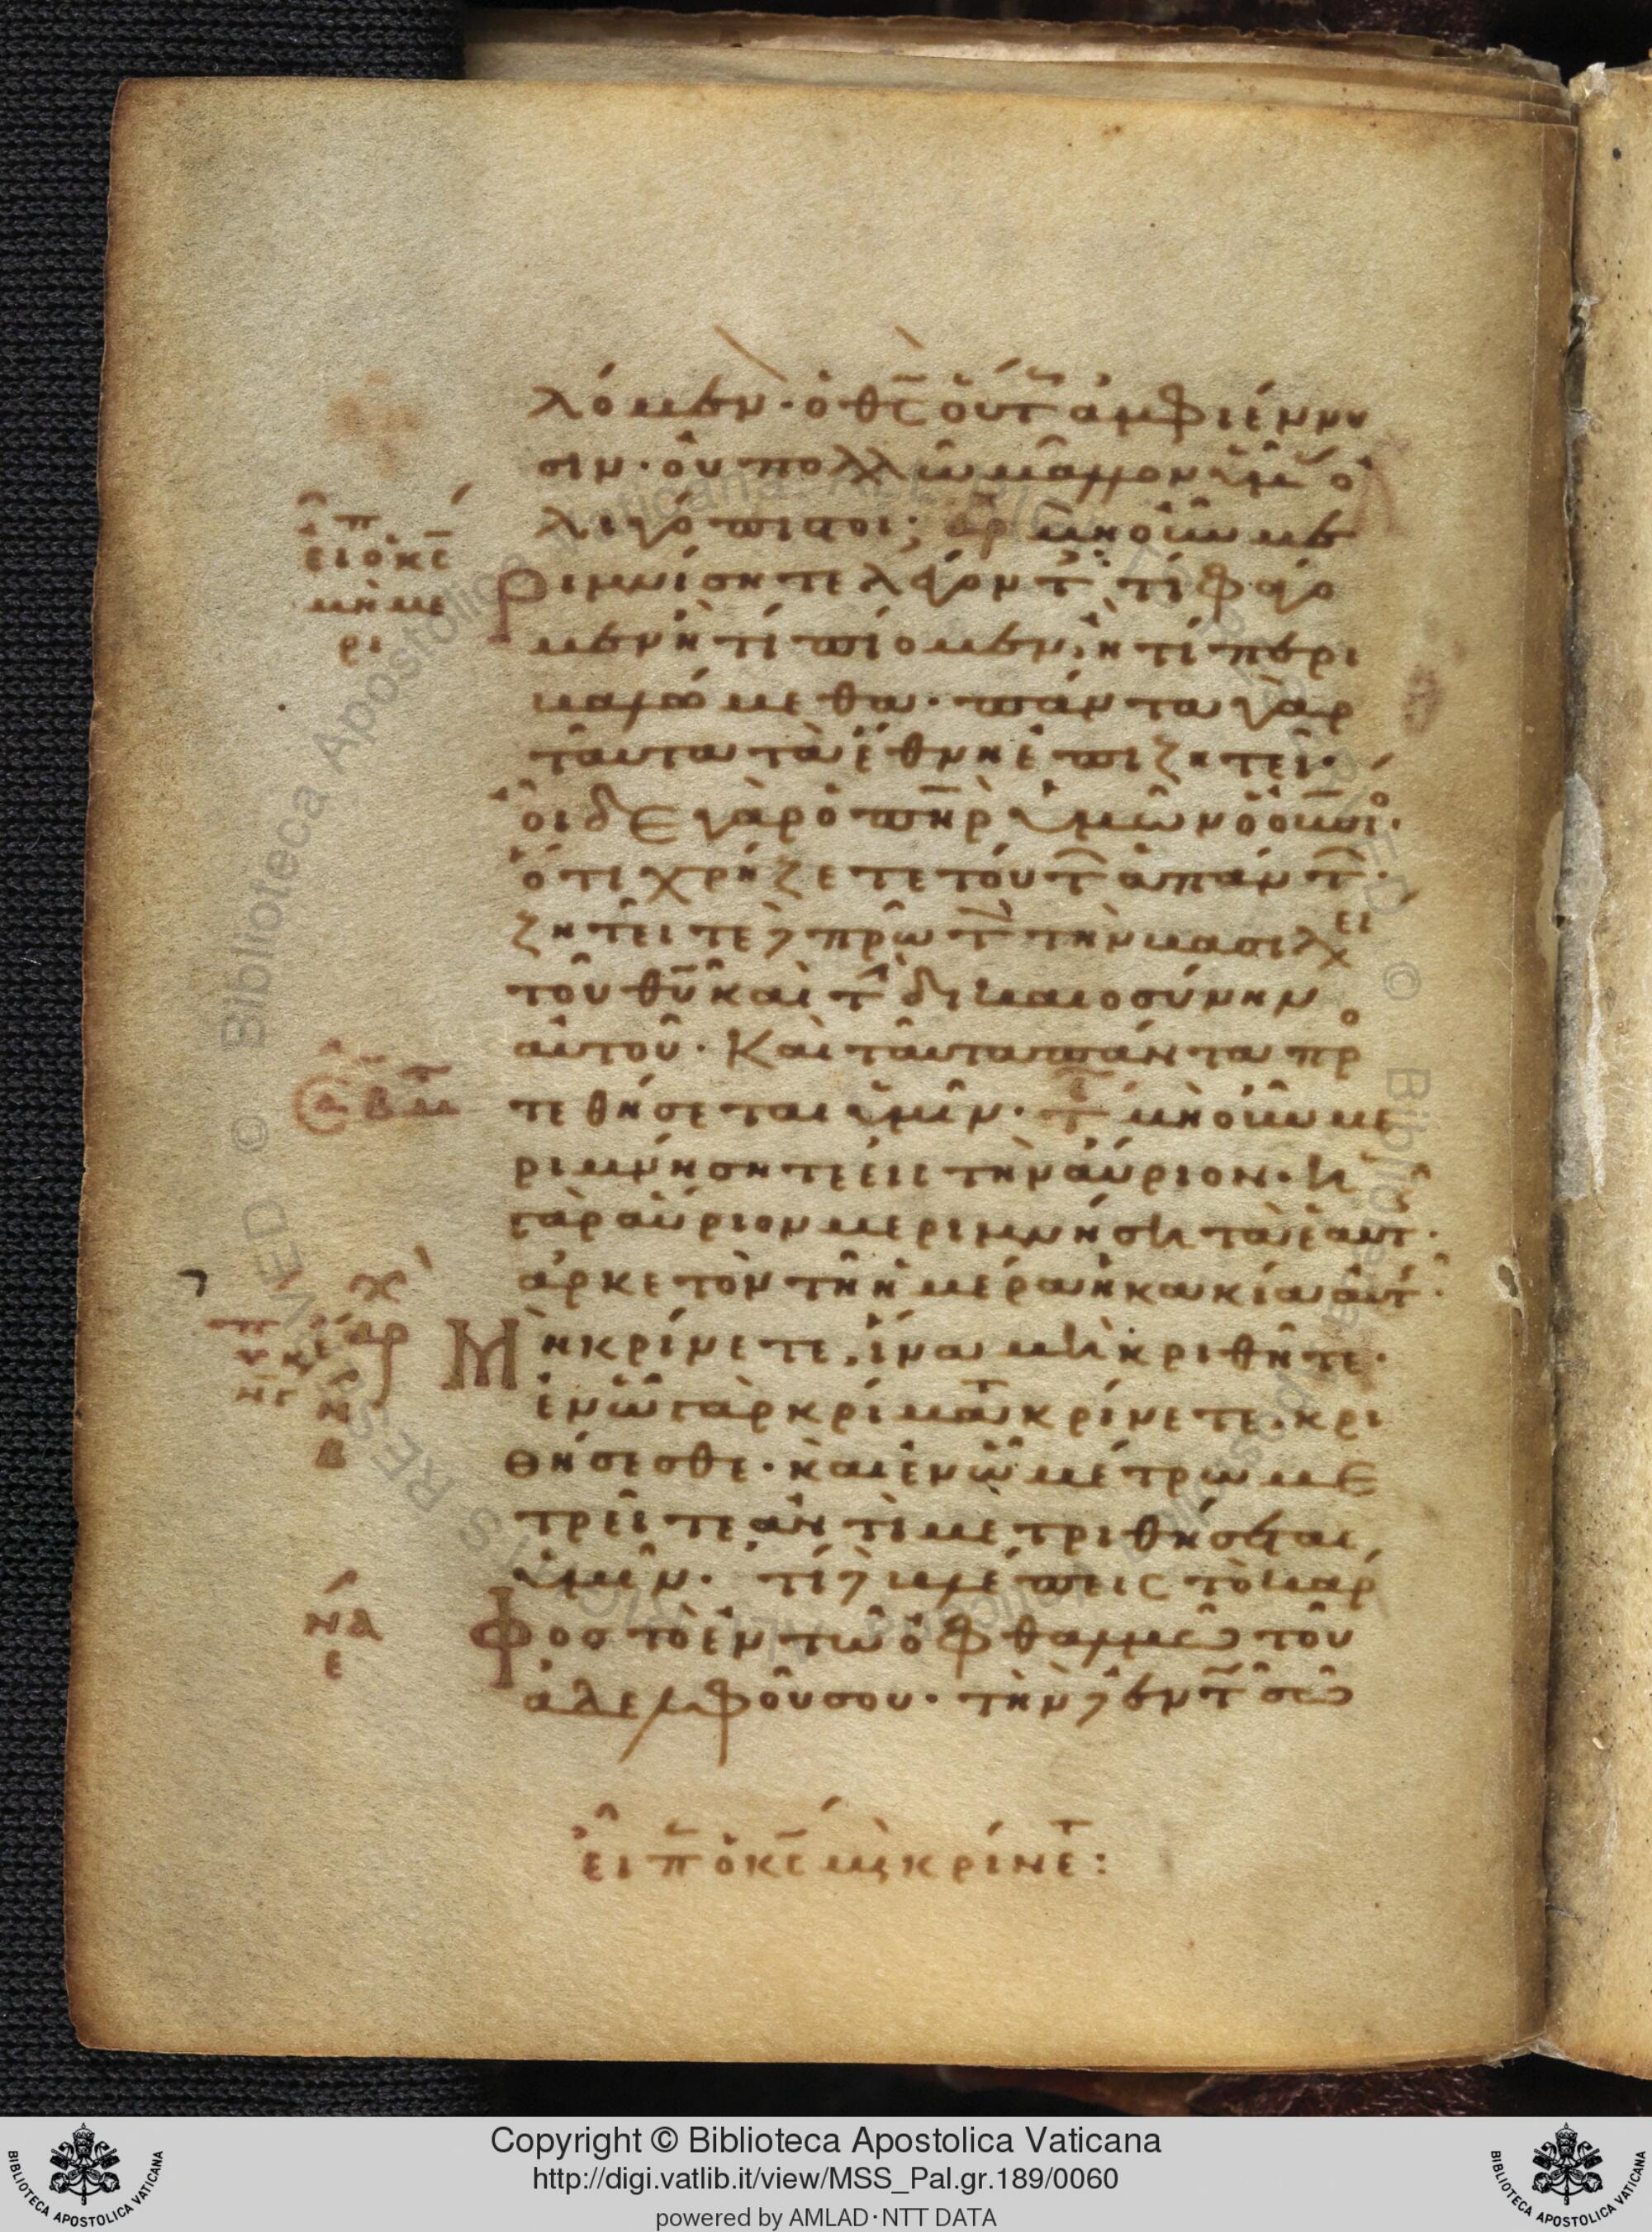 λόμενον· ὁ θς οὕτ ἀμφιέννυ
σιν· οὐ πολλῶ μᾶλλον ὑμ ὀ
λιγόπιστοι; ἀρ μὴ οὖν με
ριμνήσητε λέγοντ· τί φάγο
μεν ἢ τί πίομεν, ἢ τί περι
βαλώμεθα· πάντα γὰρ
ταῦτα τὰ ἔθνη ἐπιζητεῖ·
οἶδε γὰρ ὁ πηρ ὑμῶν ὁ οὐνι·
ὅτι χρήζετε τούτ ἁπάντ·
ζητεῖτε δὲ πρῶτ τὴν βασιλει
τοῦ θυ καὶ τ δικαιοσύνην
αὐτοῦ· Καὶ ταῦτα πάντα προ
τεθήσεται ὑμῖν· τ μὴ οὖν με
ριμνήσητε εἰς τὴν αὔριον· ἡ
γὰρ αὔριον μεριμνήσει τὰ ἑαυτ·
ἀρκετὸν τῆ ἡμέρα ἡ κακία αὐτ·
Μὴ κρίνετε, ἵνα μὴ κριθῆτε·
ἐν ᾧ γὰρ κρίματι κρίνετε, κρι
θήσεσθε· καὶ ἐν ᾧ μέτρω με
τρεῖτε, ἀντιμετριθήσεται
ὑμῖν· τί δὲ βλέπεις τὸ κάρ
φος τὸ ἐν τῶ ὀφθαλμῶ τοῦ
ἀδελφοῦ σου· τὴν δὲ ἐν τ σῶ
εἶπ ὁ κς μὴ κρίνετ:
ειοκε
μὴ με
ρι
ΝΑ
Ε
Copyright © Biblioteca Apostolica Vaticana
http://digi.vatlib.it/view/MSS_Pal.gr.189/0060
powered by AMLAD·NTT DATA
BIBLIOTECA APOSTOLICA VATICANA
BIBLIOTECA APOSTOLICA VATICANA